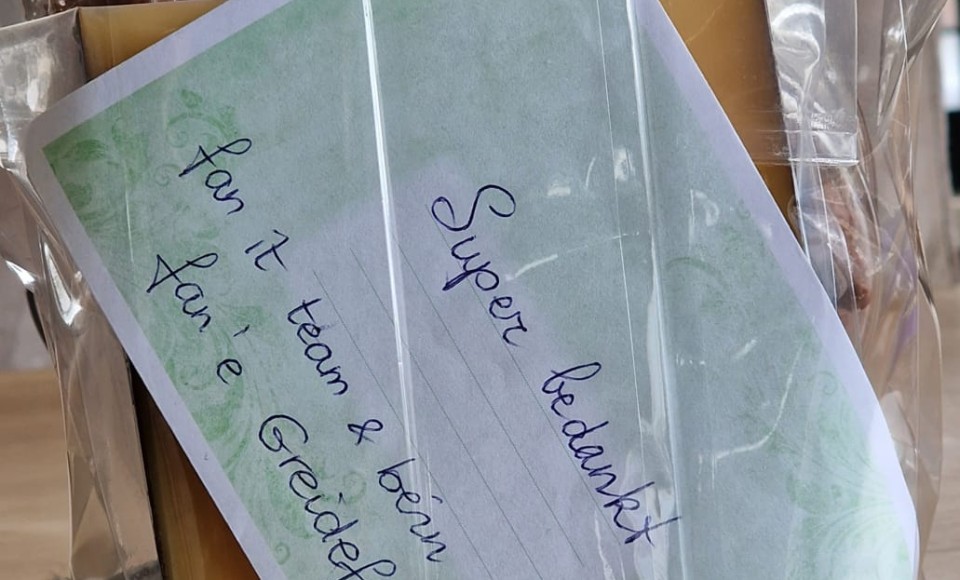 Super bedankt
fan it team & bern
fan'e